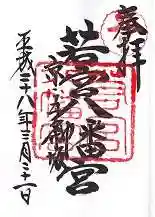 奉拝
若宮八幡宮
京・五条坂
平成二十八年三月二十一日